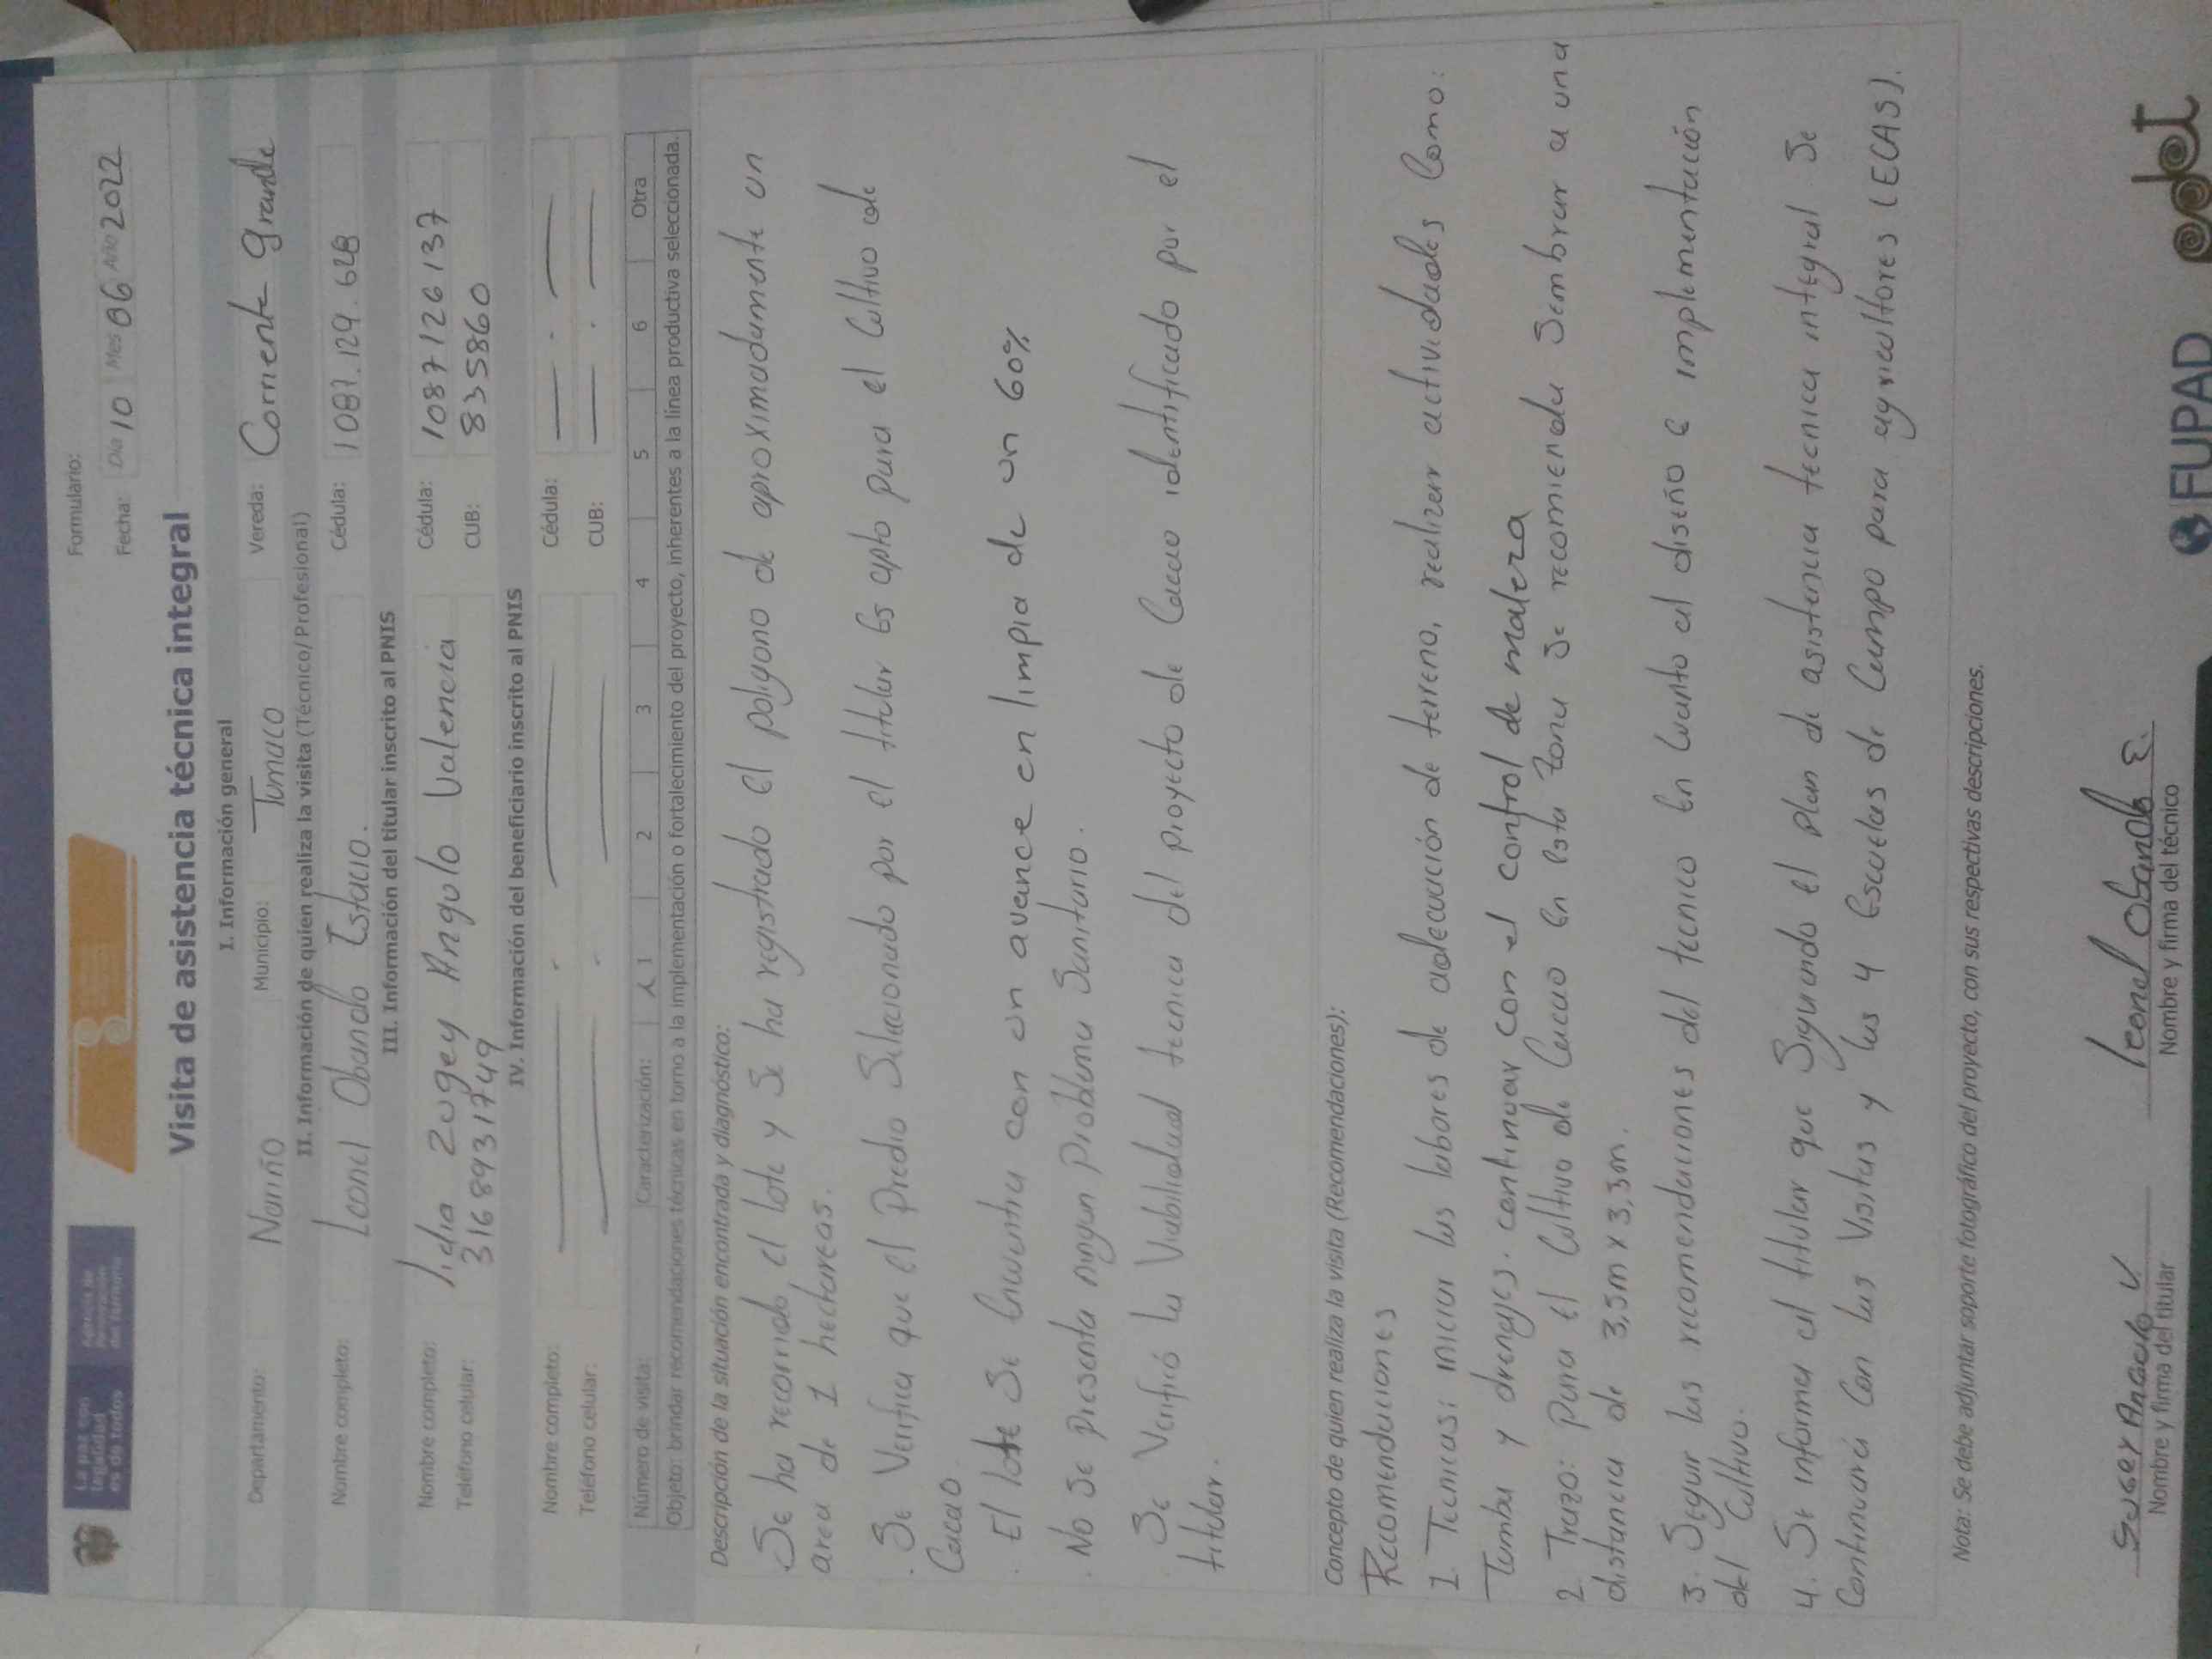 La paz con legalidad es de todos
Agencia de Renovación del Territorio
Formulario:
Fecha: Día 10 Mes 06 Año 2022
Visita de asistencia técnica integral
I. Información general
Departamento: Nariño Municipio: Tumaco Vereda: Corriente Grande
II. Información de quien realiza la visita (Técnico/Profesional)
Nombre completo: Leonel Obando Estacio. Cédula: 1087.129.628
III. Información del titular inscrito al PNIS
Nombre completo: lidia Zugey Angulo Valencia Cédula: 1087126137
Teléfono celular: 3168931749 CUB: 835860
IV. Información del beneficiario inscrito al PNIS
Nombre completo: Cédula:
Teléfono celular: CUB:
Número de visita: Caracterización: X 1 2 3 4 5 6 Otra
Objeto: brindar recomendaciones técnicas en torno a la implementación o fortalecimiento del proyecto, inherentes a la línea productiva seleccionada.
Descripción de la situación encontrada y diagnóstico:
Se ha recorrido el lote y se ha registrado el poligono de aproximadamente un
area de 1 hectareas.
. Se Verifica que el Predio Seleccionado por el titular Es apto para el Cultivo de
Cacao.
. El lote Se Encuentra con un avance en limpia de un 60%
. No Se presenta ningun Problema Sanitario.
Se Verificó la Viabilidad tecnica del proyecto de Cacao identificado por el
titular.
Concepto de quien realiza la visita (Recomendaciones):
Recomendaciones
1. Tecnicas: iniciar las labores de adecuación de terreno, realizar actividades Como:
Tumba y drenajes. continuar con el control de maleza
2. Trazo: Para el Cultivo de Cacao En Esta zona Se recomienda Sembrar a una
distancia de 3,3m x 3,3m.
3. Seguir las recomendaciones del tecnico En Cuanto al diseño e implementación
del Cultivo.
4. Se informa al titular que Siguiendo el plan de asistencia tecnica integral Se
Continuará Con las Visitas y las 4 Escuelas de Campo para agricultores (ECAS).
Nota: Se debe adjuntar soporte fotográfico del proyecto, con sus respectivas descripciones.
Sugey Angulo V
Nombre y firma del titular
leonel Obando E.
Nombre y firma del técnico
FUPAD
pdet